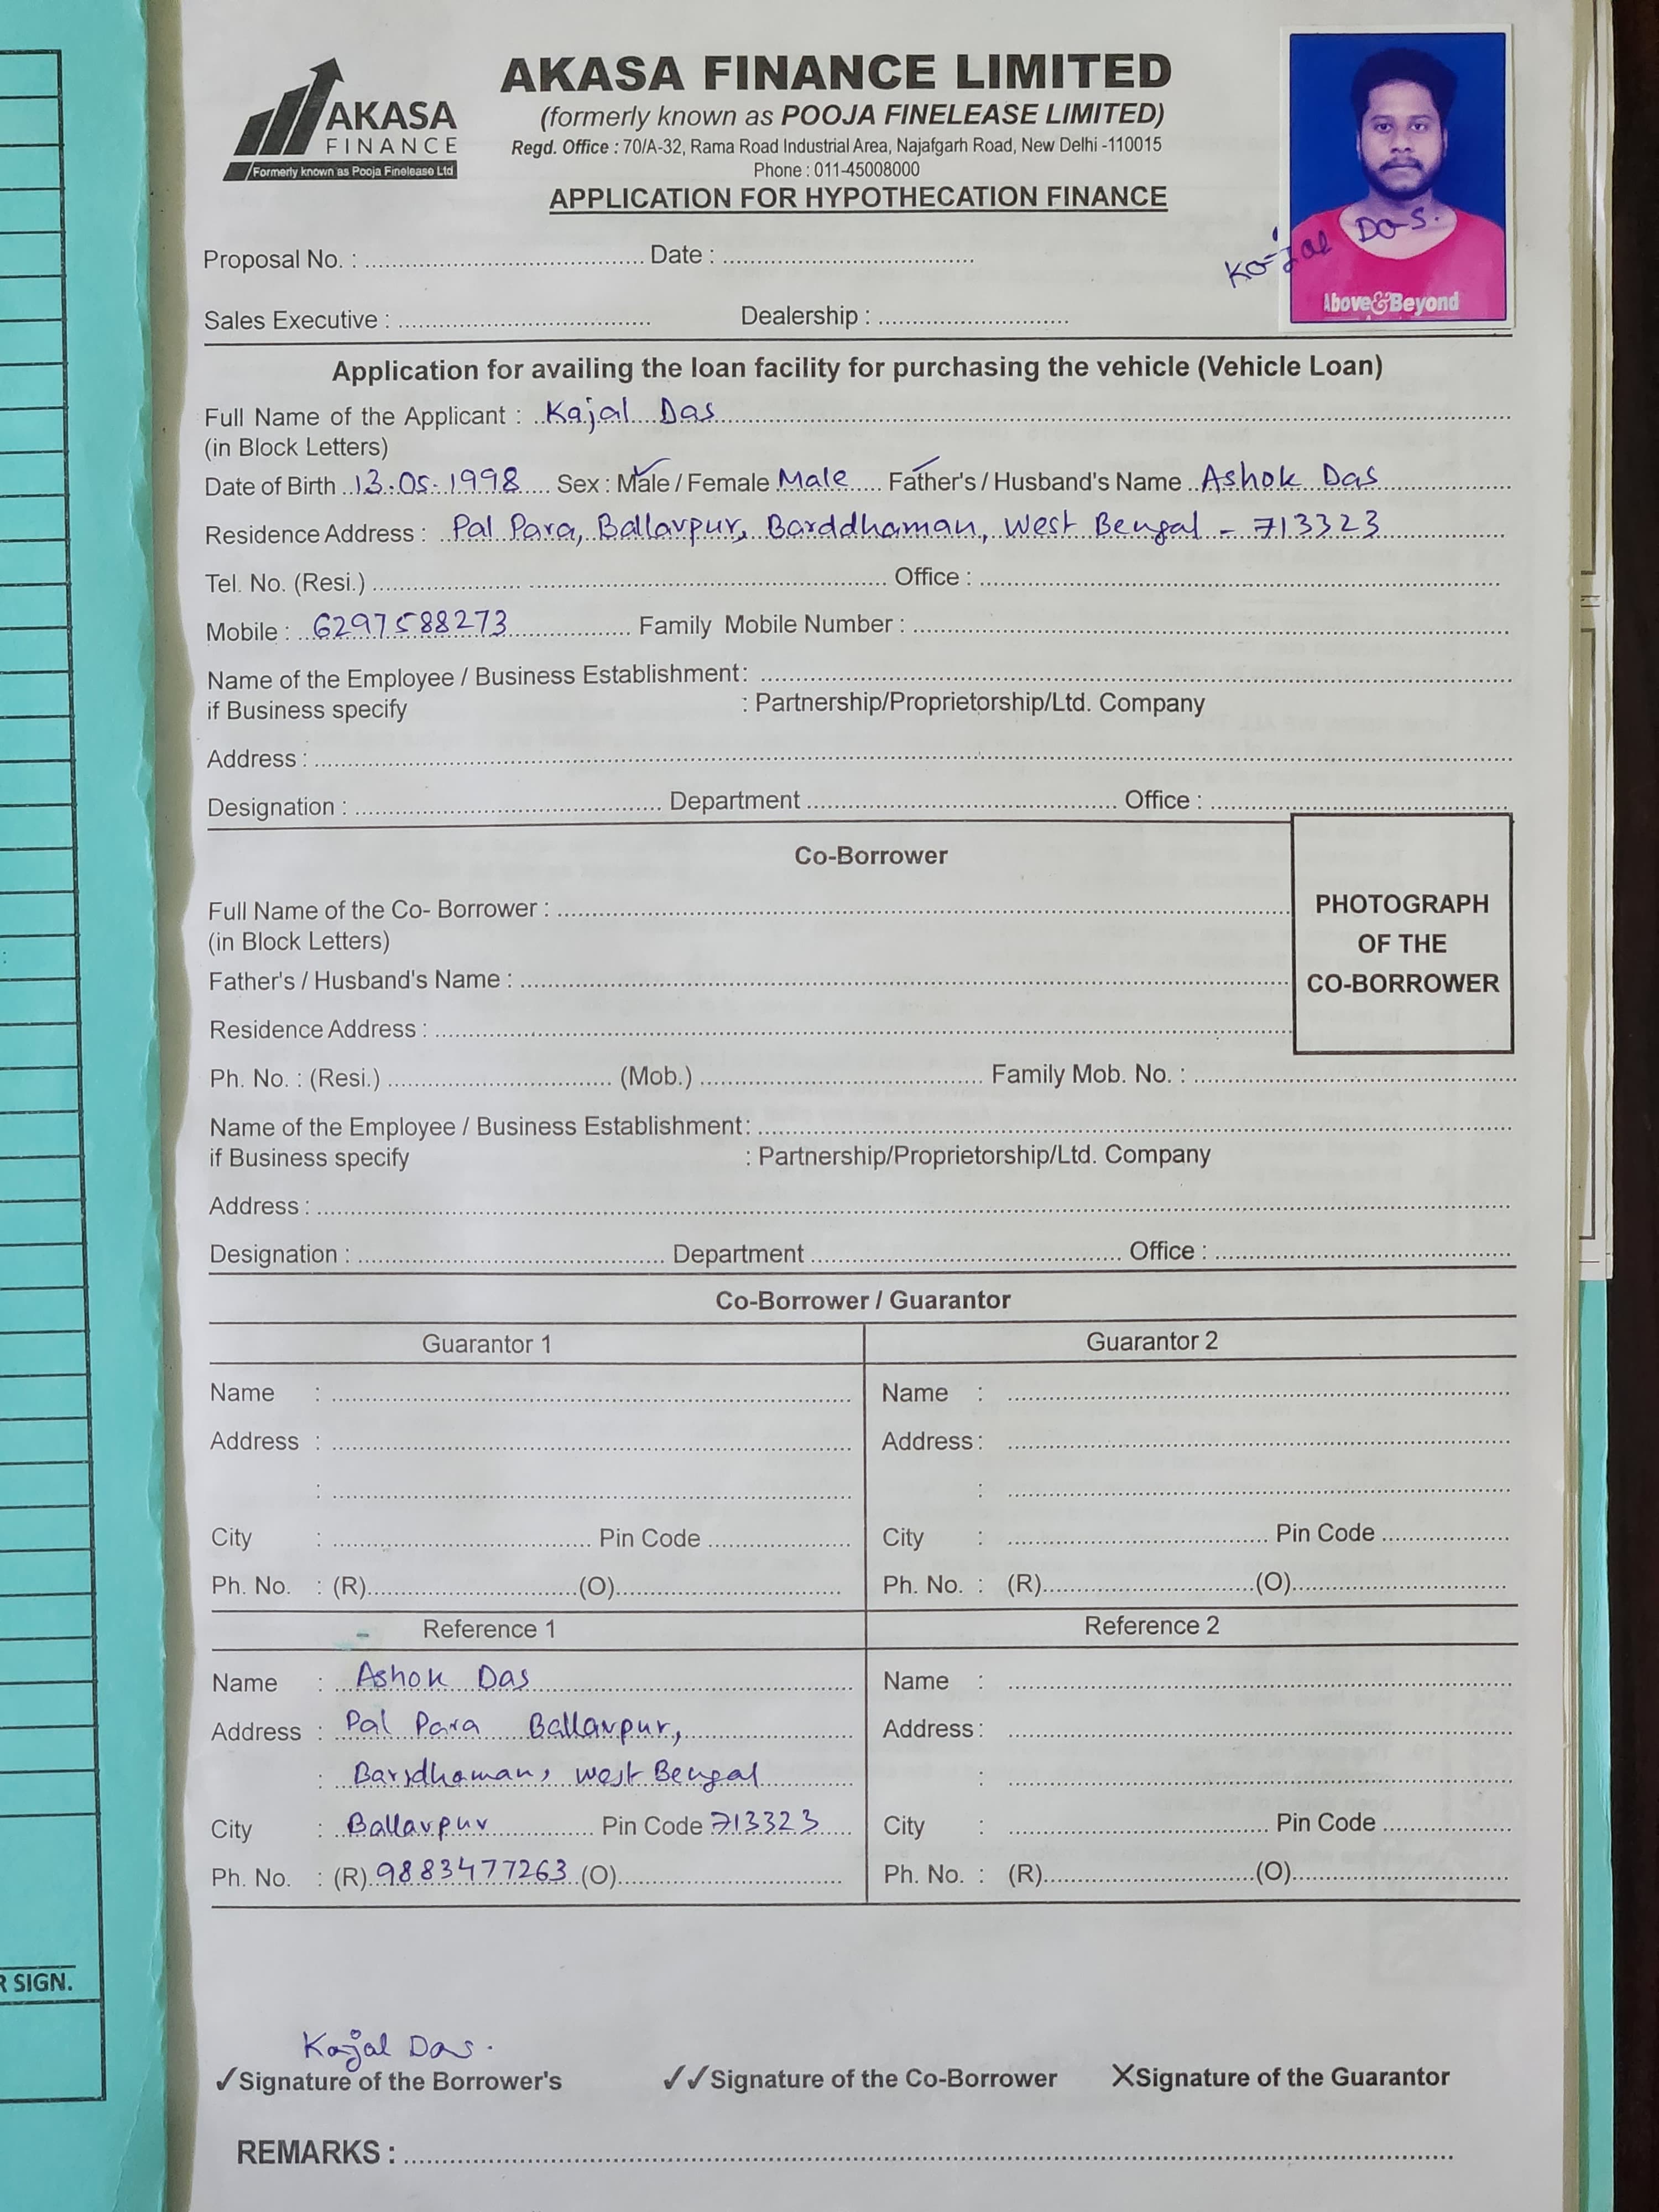 AKASA FINANCE LIMITED
(formerly known as POOJA FINELEASE LIMITED)
AKASA
FINANCE
Formerly known as Pooja Finelease Ltd
Regd. Office : 70/A-32, Rama Road Industrial Area, Najafgarh Road, New Delhi -110015
Phone : 011-45008000
APPLICATION FOR HYPOTHECATION FINANCE
Kajal Das.
Above&Beyond
Proposal No. : Date :
Sales Executive : Dealership :
Application for availing the loan facility for purchasing the vehicle (Vehicle Loan)
Full Name of the Applicant : Kajal Das
(in Block Letters)
Date of Birth 13.05.1998 Sex : Male / Female Male Father's / Husband's Name Ashok Das
Residence Address : Pal Para, Ballavpur, Barddhaman, West Bengal - 713323
Tel. No. (Resi.) Office :
Mobile : 6297588273 Family Mobile Number :
Name of the Employee / Business Establishment:
if Business specify : Partnership/Proprietorship/Ltd. Company
Address :
Designation : Department Office :
Co-Borrower
PHOTOGRAPH
OF THE
CO-BORROWER
Full Name of the Co- Borrower :
(in Block Letters)
Father's / Husband's Name :
Residence Address :
Ph. No. : (Resi.) (Mob.) Family Mob. No. :
Name of the Employee / Business Establishment:
if Business specify : Partnership/Proprietorship/Ltd. Company
Address :
Designation : Department Office :
Co-Borrower / Guarantor
Guarantor 1 Guarantor 2
Name : Name :
Address : Address :
: :
City : Pin Code City : Pin Code
Ph. No. : (R) (O) Ph. No. : (R) (O)
Reference 1 Reference 2
Name : Ashok Das Name :
Address : Pal Para Ballavpur, Address :
: Barddhaman, West Bengal :
City : Ballavpur Pin Code 713323 City : Pin Code
Ph. No. : (R) 9883477263 (O) Ph. No. : (R) (O)
R SIGN.
Kajal Das.
✓Signature of the Borrower's ✓✓Signature of the Co-Borrower XSignature of the Guarantor
REMARKS :